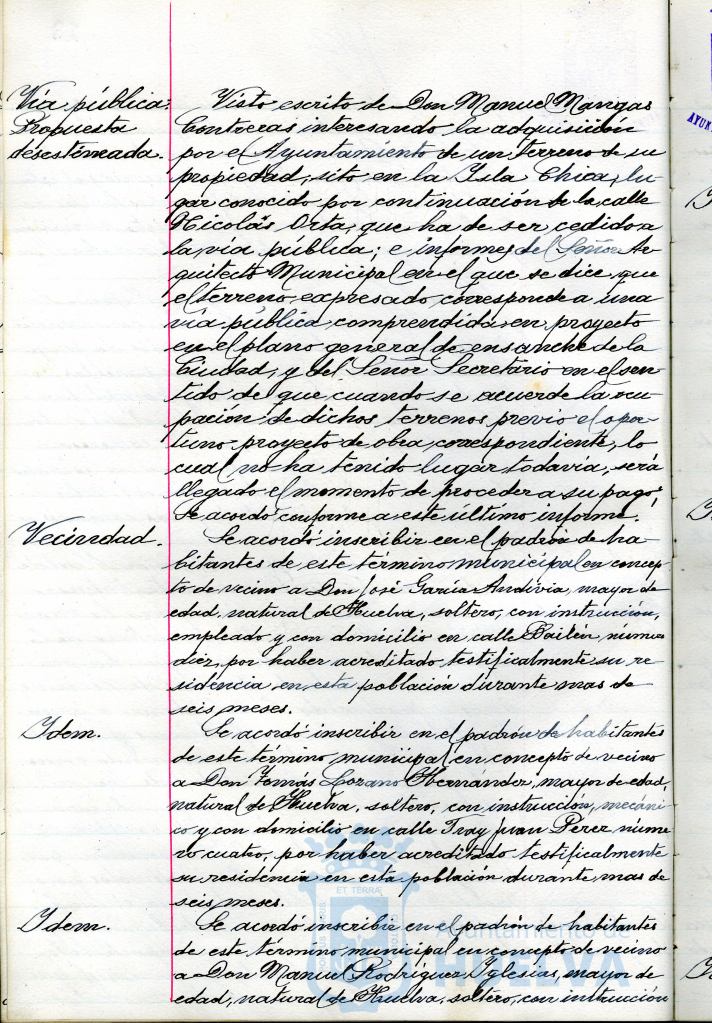 Vía pública.
Propuesta
desestemeada.
Visto escrito de Don Manuel Mangas
Contreras interesando la adquisición
por el Ayuntamiento de un terreno de su
propiedad, sito en la Isla Chica, lu-
gar conocido por continuación de la calle
Nicolás Orta, que ha de ser cedido a
la vía pública; e informes del Señor Ar-
quitecto Municipal en el que se dice que
el terreno expresado corresponde a una
vía pública comprendida en proyecto
en el plano general de ensanche de la
Ciudad, y del Señor Secretario en el sen-
tido de que cuando se acuerde la ocu-
pación de dichos terrenos previo el opor-
tuno proyecto de obra correspondiente, lo
cual no ha tenido lugar todavía, será
llegado el momento de proceder a su pago,
Se acordó conforme a este último informe.
Vecindad.
Se acordó inscribir en el padrón de ha-
bitantes de este término municipal en concep-
to de vecino a Don José García Andivia, mayor de
edad, natural de Huelva, soltero, con instrucción,
empleado y con domicilio en calle Bailén, número
diez, por haber acreditado testificalmente su re-
sidencia en esta población durante mas de
seis meses.
Idem.
Se acordó inscribir en el padrón de habitantes
de este término municipal en concepto de vecino
a Don Tomás Lozano Hernández, mayor de edad,
natural de Huelva, soltero, con instruccion, mecáni-
co y con domicilio en calle Fray Juan Perez núme-
ro cuatro, por haber acreditado testificalmente
su residencia en esta población durante mas de
seis meses.
Idem.
Se acordó inscribir en el padrón de habitantes
de este término municipal en concepto de vecino
a Don Manuel Rodríguez Iglesias, mayor de
edad, natural de Huelva, soltero, con instrucción
ET TERRÆ
Ayuntamiento de
HUELVA
AYUN